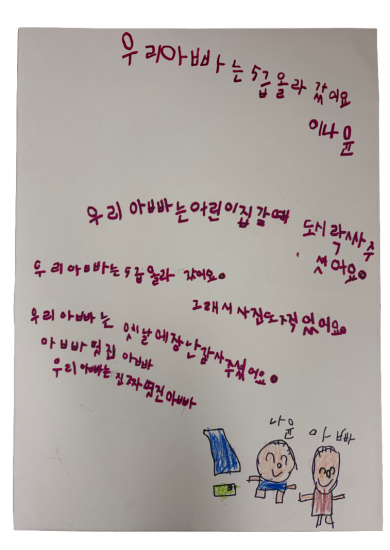 우리아빠는 5급올라 갔어요
이나윤
우리 아빠는어린이집갈때 도시락싸주
셧아요。
우리아빠는5급올라 갔어요。
그래서사진또찍었어요。
우리아빠는 옛날에장난감사주셨어요。
아빠멋진 아빠
우리아빠는진짜멋진아빠
나윤 아빠